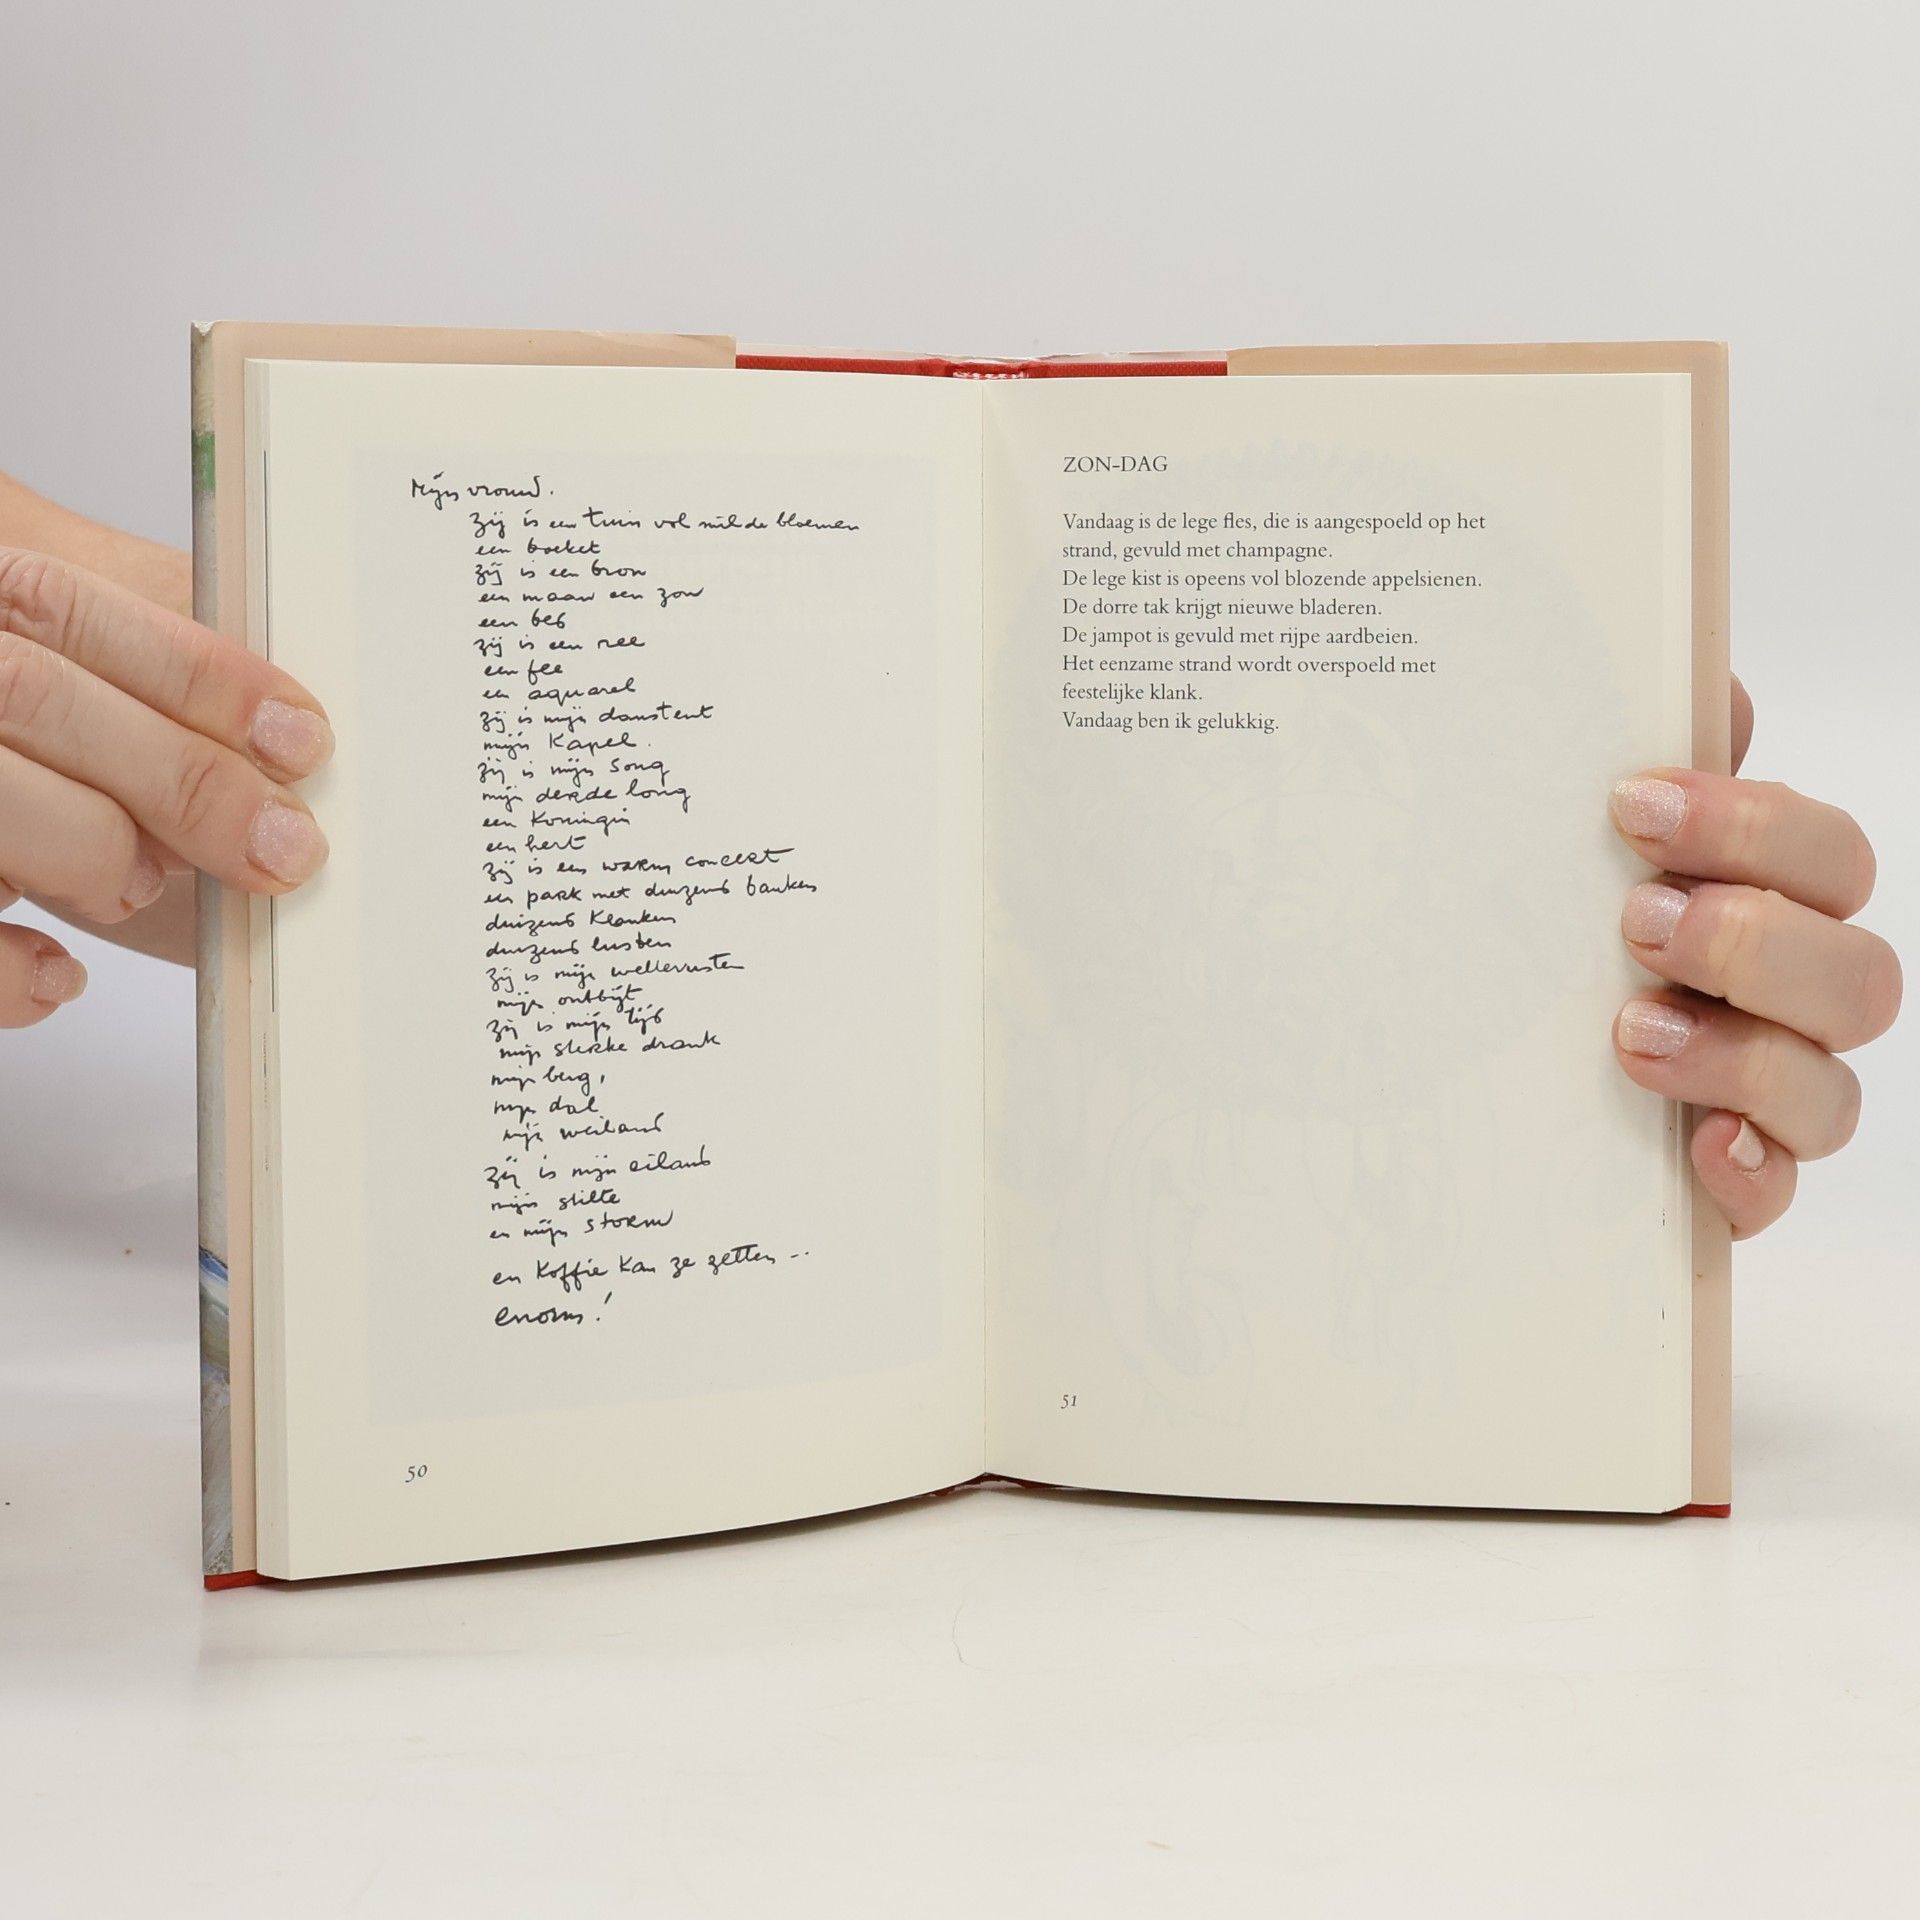 Mijn vrouw.
zij is een tuin vol milde bloemen
een boeket
zij is een bron
een maan een zon
een bed
zij is een ree
een fee
een aquarel
zij is mijn danstent
mijn Kapel.
zij is mijn song
mijn derde long
een Koningin
een hert
zij is een warm concert
een park met duizend banken
duizend Klanken
duizend lusten
zij is mijn wellerusten
mijn ontbijt
zij is mijn tijd
mijn sterke drank
mijn berg,
mijn dal
mijn weiland
zij is mijn eiland
mijn stilte
en mijn storm
en Koffie Kan ze zetten --
enorm!
50
ZON-DAG
Vandaag is de lege fles, die is aangespoeld op het
strand, gevuld met champagne.
De lege kist is opeens vol blozende appelsienen.
De dorre tak krijgt nieuwe bladeren.
De jampot is gevuld met rijpe aardbeien.
Het eenzame strand wordt overspoeld met
feestelijke klank.
Vandaag ben ik gelukkig.
51